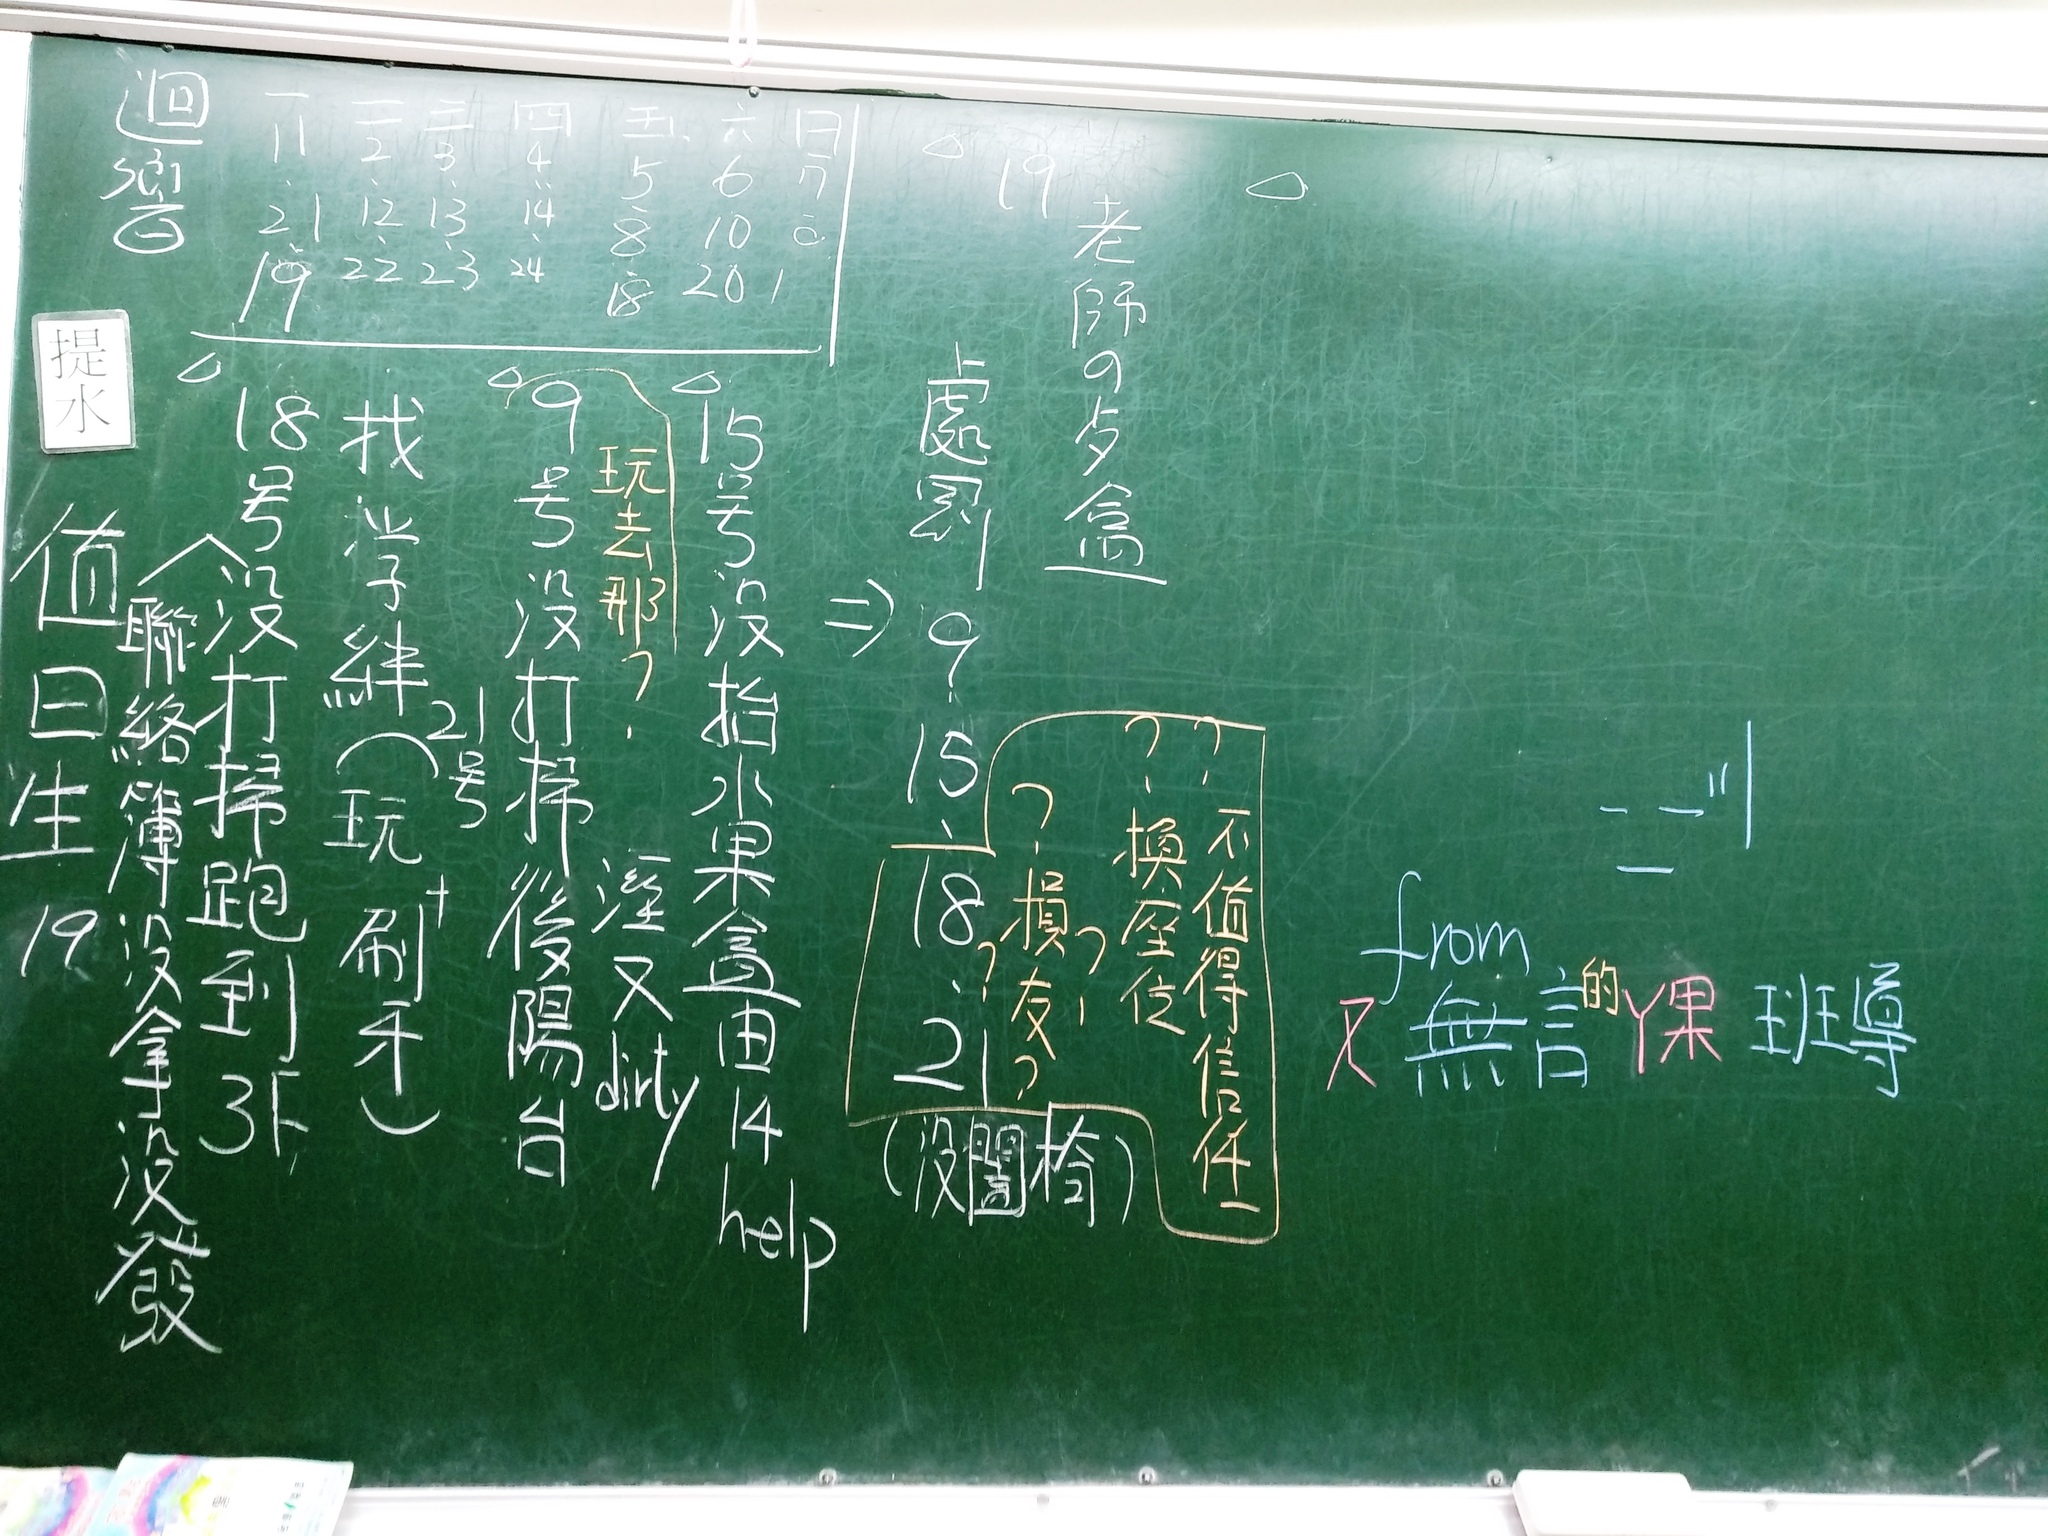 迴響
一 二 三 四 五 六 日
11 2 3 4 5 6 7
21 12 13 14 8 10
19 22 23 24 18 20 1
提水
值日生 19
聯絡簿沒拿沒發
18号沒打掃跑到3F
找学絆(玩+刷牙)
21号
9号沒打掃後陽台
溼又dirty
玩去那?
15号沒抬水果盒由14 help
⇒
處罰 9、15、18、21
(沒關椅)
?損友?
?換座位
?不值得信任
19
老師の歺盒
from
又無言的丫果 班導